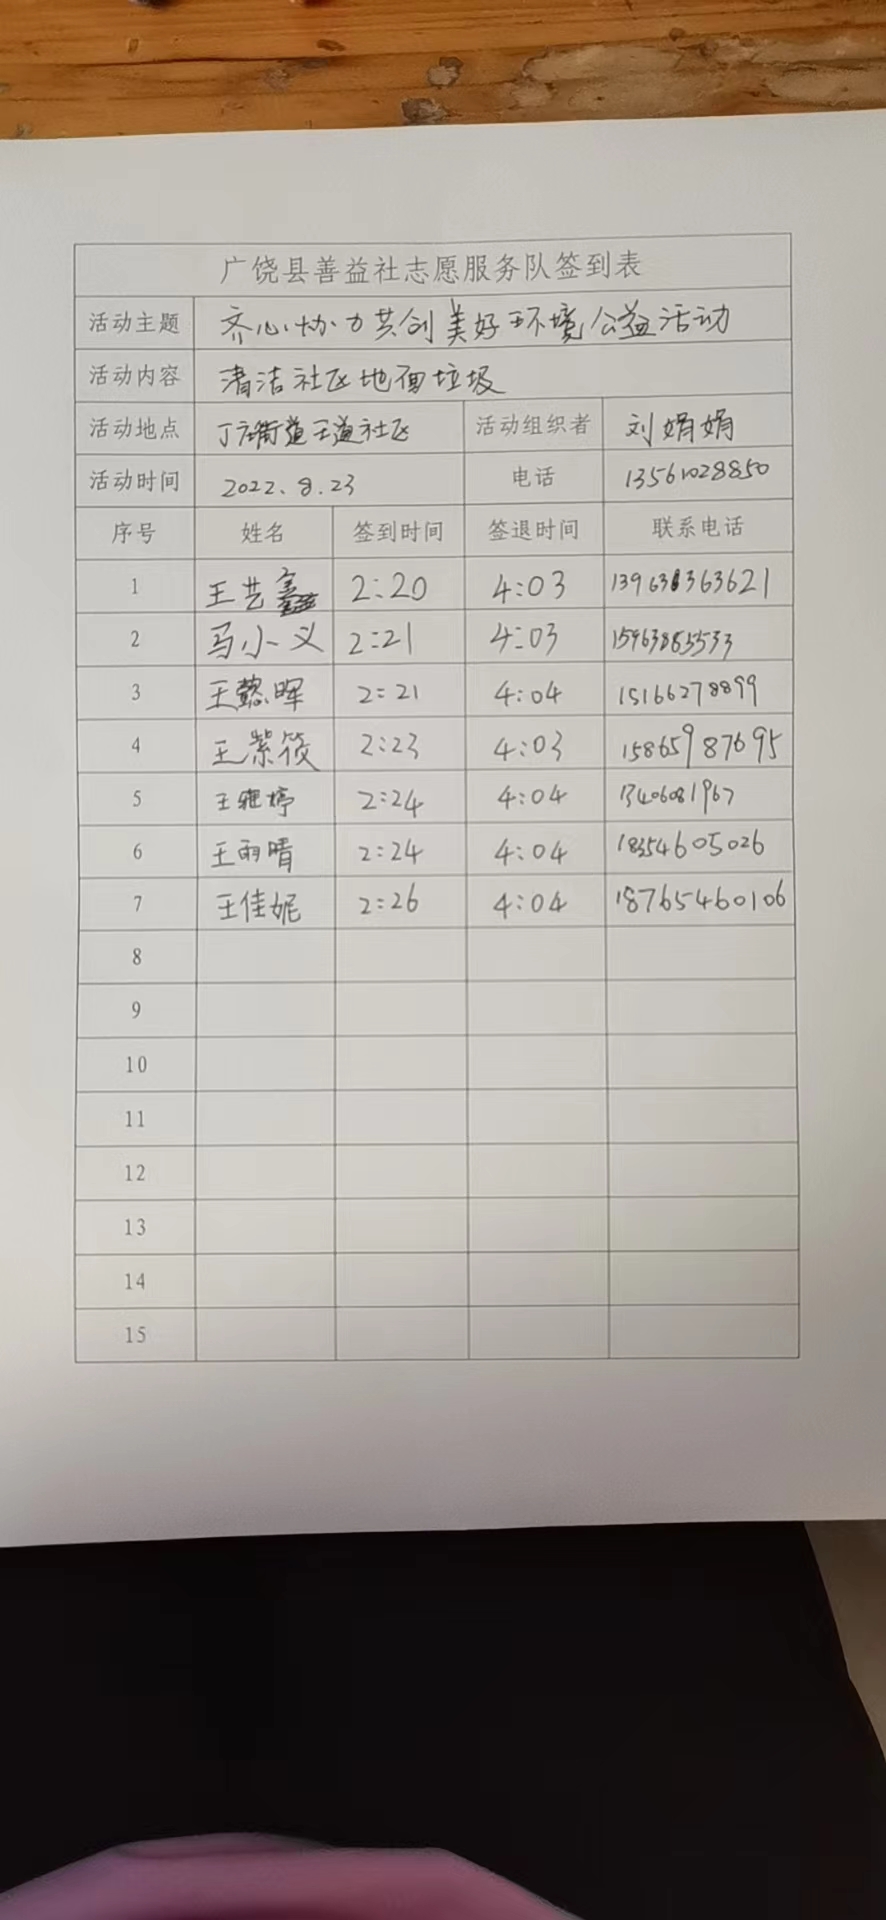 广饶县善益社志愿服务队签到表
活动主题 齐心协力共创美好环境公益活动
活动内容 清洁社区地面垃圾
活动地点 丁庄街道王道社区 活动组织者 刘娟娟
活动时间 2022.8.23 电话 13561028850
序号 姓名 签到时间 签退时间 联系电话
1 王艺 2:20 4:03
2 马小义 2:21 4:03 15963885533
3 王懿晖 2:21 4:04 15166278899
4 王紫筱 2:23 4:03 15865987695
5 王雅婷 2:24 4:04 13406081967
6 王雨晴 2:24 4:04 18354605026
7 王佳妮 2:26 4:04 18765460106
8
9
10
11
12
13
14
15